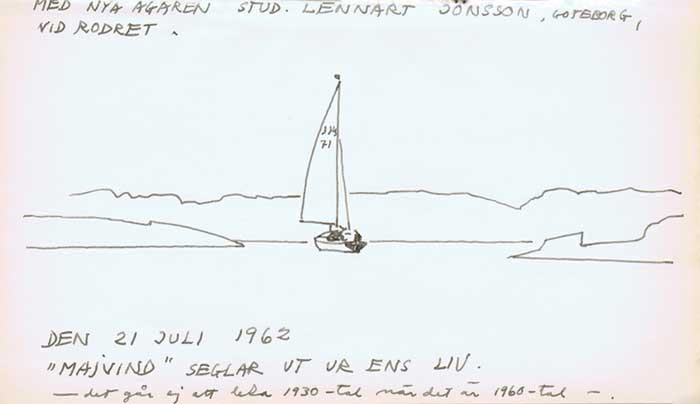 MED NYA ÄGAREN STUD. LENNART JÖNSSON, GÖTEBORG,
VID RODRET.
71
DEN 21 JULI 1962
"MAJVIND" SEGLAR UT UR ENS LIV.
— det går ej att leka 1930-tal när det är 1960-tal —.